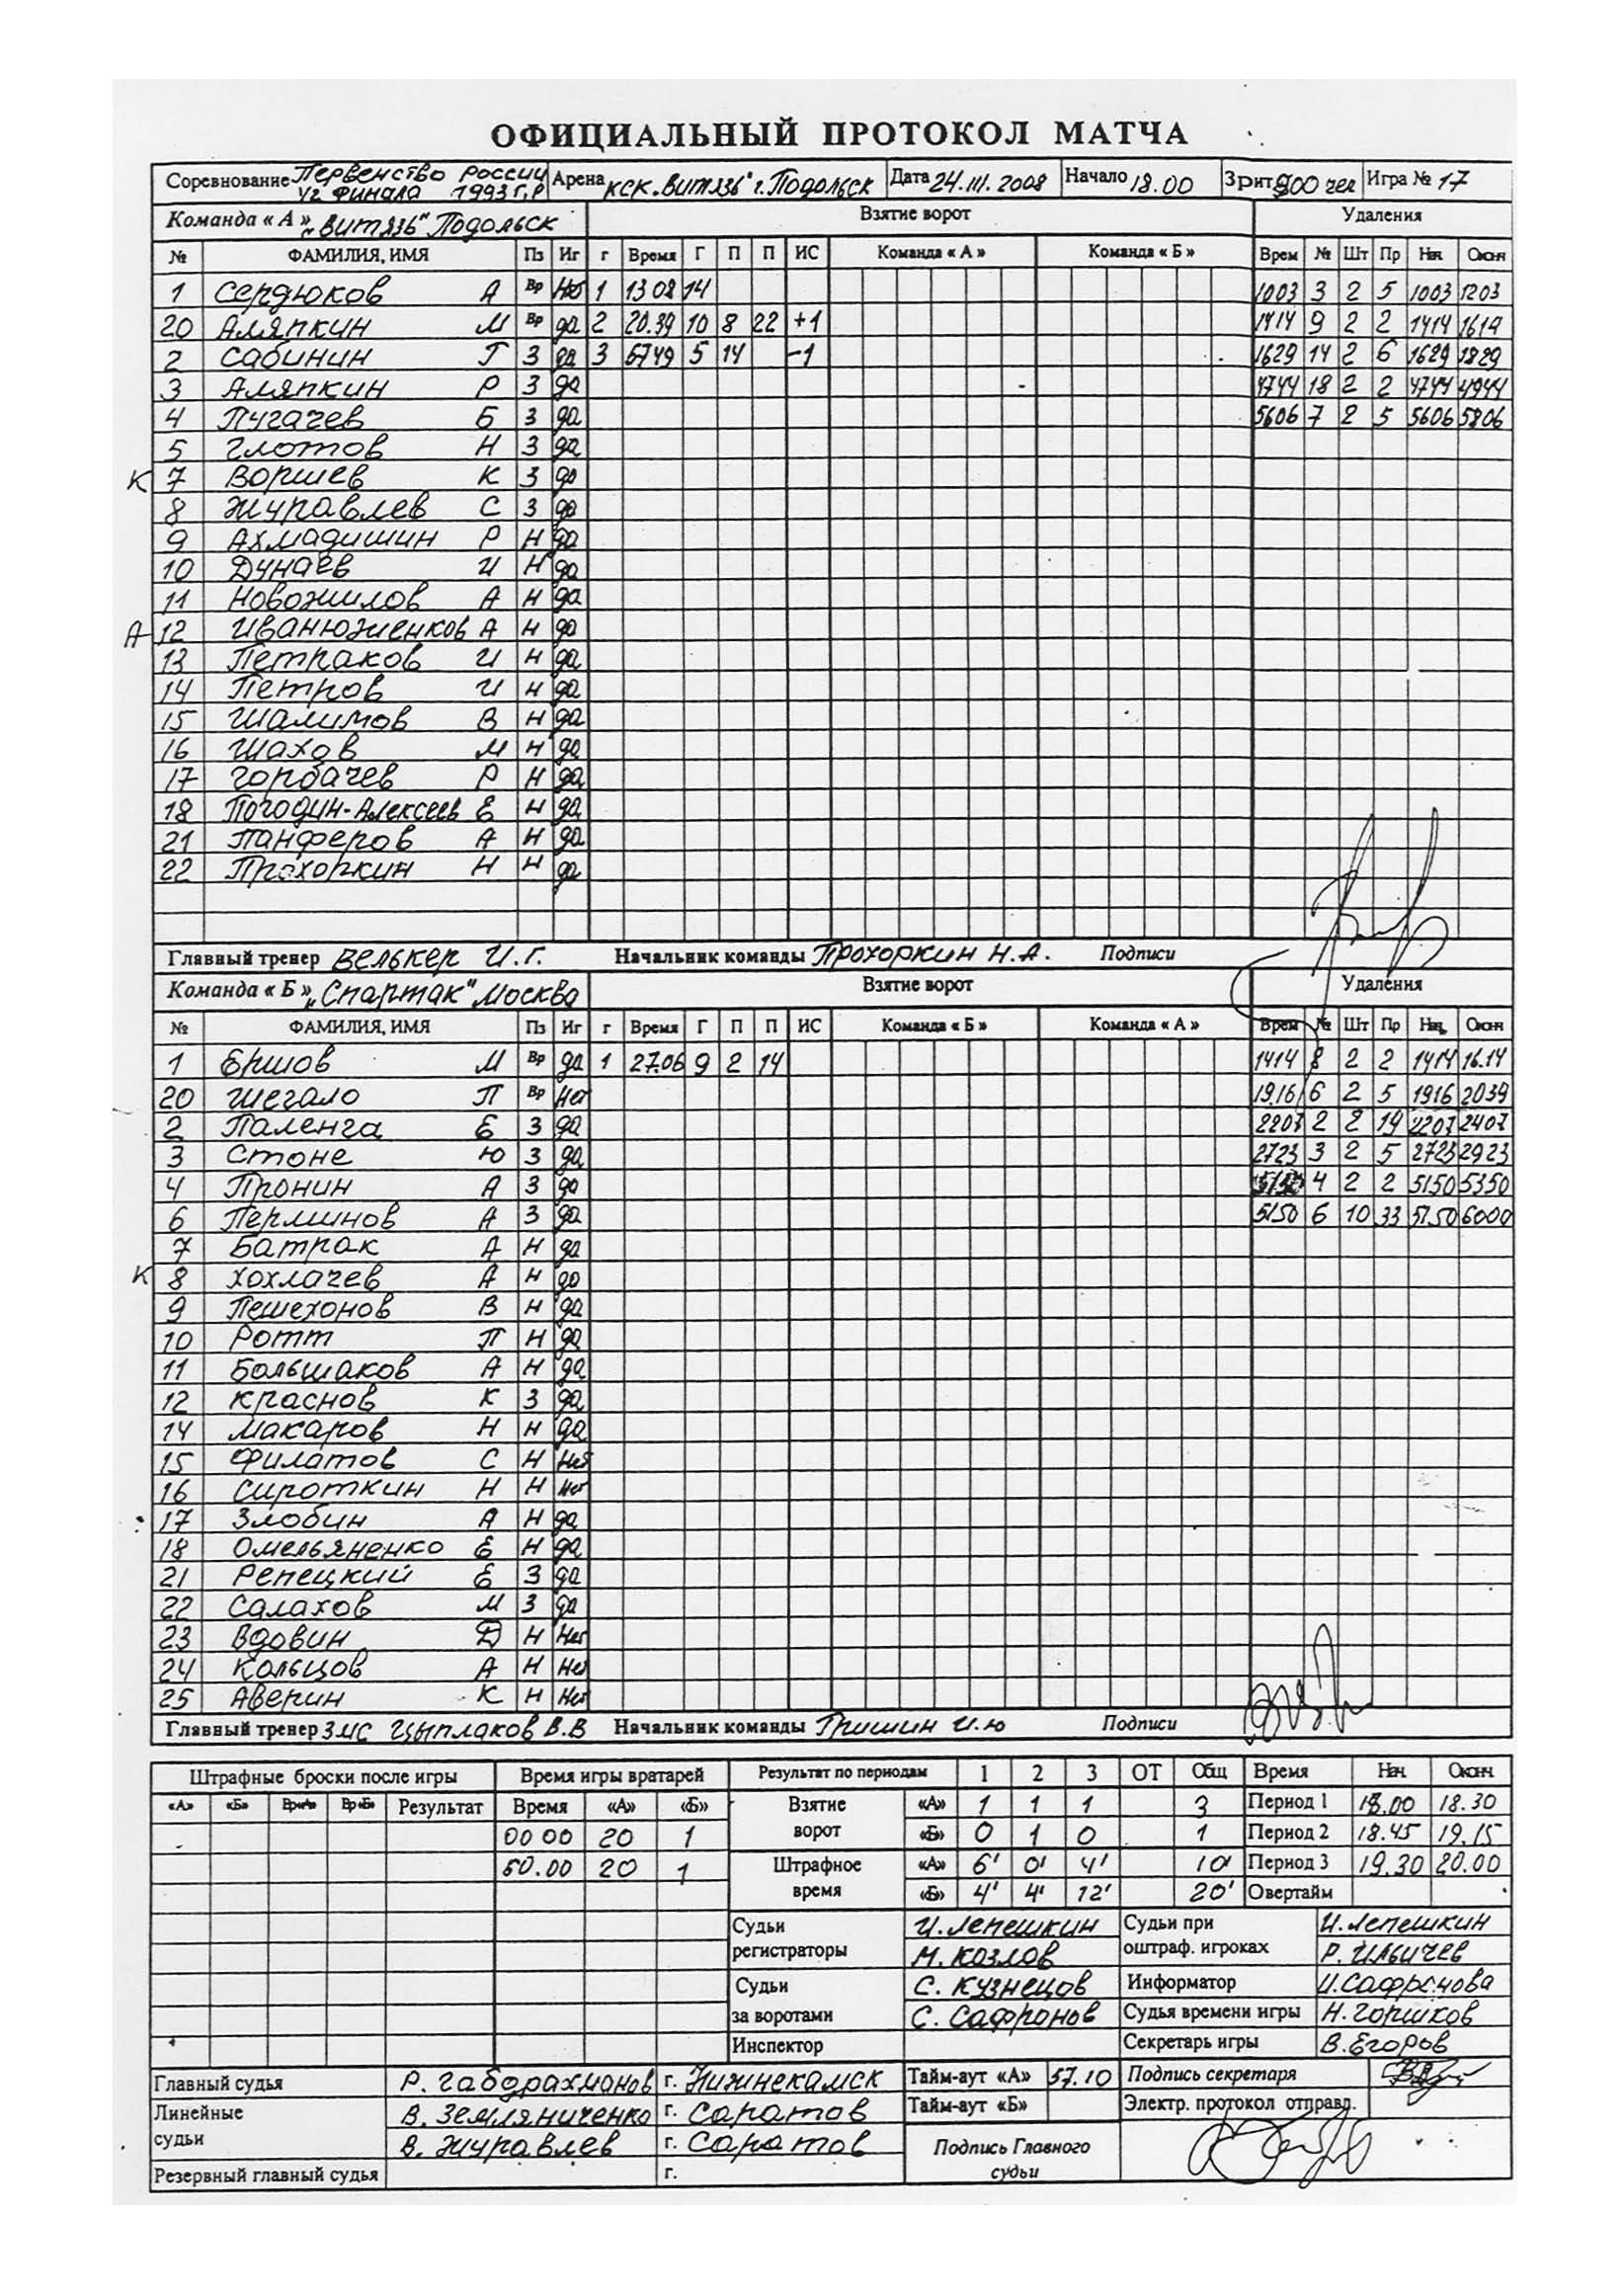 ОФИЦИАЛЬНЫЙ ПРОТОКОЛ МАТЧА
Соревнование Первенство России Арена КСК "Витязь" г. Подольск Дата 24.III.2008 Начало 18.00 Зрит 900 чел Игра № 17
1/2 финала 1993 г.р
Команда « А » "Витязь" Подольск Взятие ворот Удаления
№ ФАМИЛИЯ, ИМЯ Пз Иг г Время Г П П ИС Команда « А » Команда « Б » Врем № Шт Пр Нач Оконч
1 Сердюков А Вр Нет 1 13 08 14 1003 3 2 5 1003 1203
20 Аляпкин М Вр да 2 20.39 10 8 22 +1 1414 9 2 2 1414 1614
2 Сабинин Г З да 3 5749 5 14 -1 1629 14 2 6 1629 1829
3 Аляпкин Р З да 4744 18 2 2 4744 4944
4 Пугачев Б З да 5606 7 2 5 5606 5806
5 Глотов Н З да
К 7 Воршев К З да
8 Журавлев С З да
9 Ахмадишин Р Н да
10 Дунаев И Н да
11 Новожилов А Н да
А 12 Иванюженков А Н да
13 Петраков И Н да
14 Петров И Н да
15 Шалимов В Н да
16 Шахов М Н да
17 Горбачев Р Н да
18 Погодин-Алексеев Е Н да
21 Панферов А Н да
22 Прохоркин Н Н да
Главный тренер Велькер И.Г. Начальник команды Прохоркин Н.А. Подписи
Команда « Б » "Спартак" Москва Взятие ворот Удаления
№ ФАМИЛИЯ, ИМЯ Пз Иг г Время Г П П ИС Команда « Б » Команда « А » Врем № Шт Пр Нач Оконч
1 Ершов М Вр да 1 27.06 9 2 14 1414 8 2 2 1414 16.14
20 Шегало П Вр Нет 19.16 6 2 5 1916 2039
2 Паленга Е З да 2207 2 2 14 2207 2407
3 Стоне Ю З да 2723 3 2 5 2723 2923
4 Пронин А З да 5150 4 2 2 5150 5350
6 Перминов А З да 5150 6 10 33 51.50 6000
7 Батрак А Н да
К 8 Хохлачев А Н да
9 Пешехонов В Н да
10 Ротт П Н да
11 Большаков А Н да
12 Краснов К З да
14 Макаров Н Н да
15 Филатов С Н Нет
16 Сироткин Н Н Нет
17 Злобин А Н да
18 Омельяненко Е Н да
21 Репецкий Е З да
22 Салахов М З да
23 Вдовин Д Н Нет
24 Кольцов А Н Нет
25 Аверин К Н Нет
Главный тренер ЗМС Цыплаков В.В Начальник команды Гришин И.Ю Подписи
Штрафные броски после игры Время игры вратарей Результат по периодам 1 2 3 ОТ Общ Время Нач. Оконч.
«А» «Б» Вр«А» Вр«Б» Результат Время «А» «Б» Взятие ворот «А» 1 1 1 3 Период 1 18.00 18.30
00 00 20 1 «Б» 0 1 0 1 Период 2 18.45 19.15
60.00 20 1 Штрафное время «А» 6' 0' 4' 10' Период 3 19.30 20.00
«Б» 4' 4' 12' 20' Овертайм
Судьи регистраторы И. Лепешкин Судьи при оштраф. игроках И. Лепешкин
М. Козлов Р. Ильичев
Судьи за воротами С. Кузнецов Информатор И. Сафронова
С. Сафронов Судья времени игры Н. Горшков
Инспектор Секретарь игры В. Егоров
Главный судья Р. Габдрахманов г. Нижнекамск Тайм-аут «А» 57.10 Подпись секретаря
Линейные судьи В. Земляниченко г. Саратов Тайм-аут «Б» Электр. протокол отправл.
В. Журавлев г. Саратов Подпись Главного судьи
Резервный главный судья г.